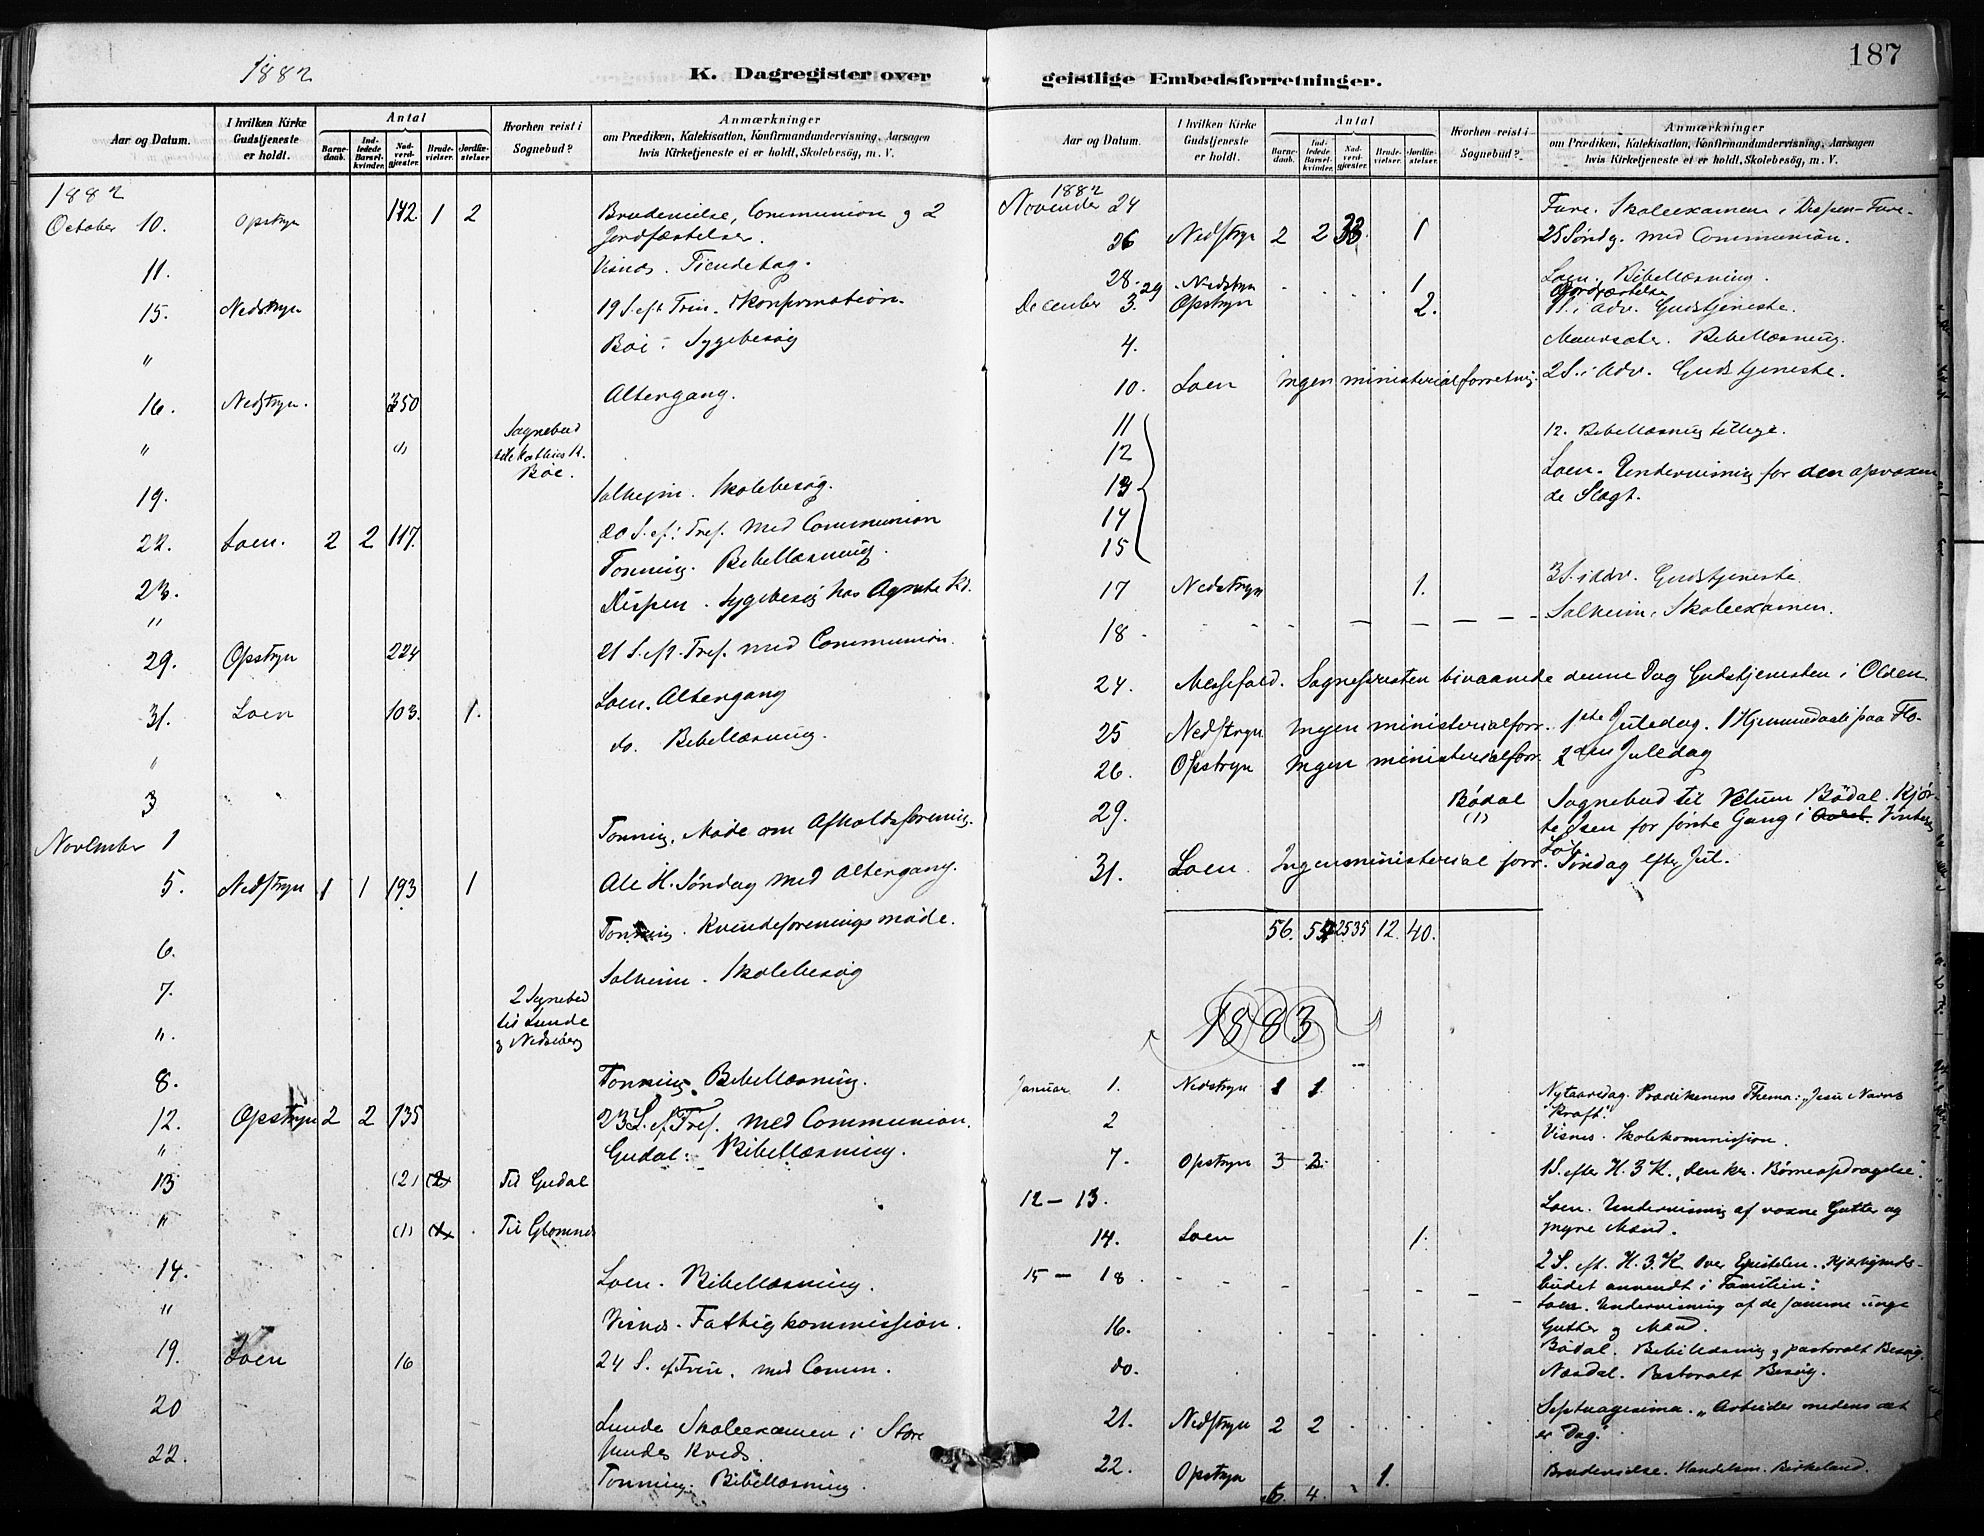 1882
K. Dagregister over
Aar og Datum.
I hvilken Kirke Gudstjeneste er holdt.
Antal
Barnedaab.
Indledede Barselkvinder.
Nadverdgjæster.
Brudevielser.
Jordfæstelser.
Hvorhen reist i Sognebud?
Anmærkninger
om Prædiken, Katekisation, Konfirmandundervisning, Aarsagen
hvis Kirketjeneste ei er holdt, Skolebesøg, m. V.
1882
October 10. Opstryn 142 1 2 Brudevielse, Communion og 2
Jordfæstelser.
11. Visnes. Tiendetag.
15. Nedstryn 19 S. eft Trin. Konfirmation.
" Bøe: Sygebesøg
16. Nedstryn. 350 Altergang.
" (1) Sognebud
Bøe.
19. Solheim. Skolebesøg.
22. Loen. 2 2 117. 20 S. ef: Tref. med Communion
Tonning. Bibellæsning.
23.
" Dispen. Sygebesøg hos Agnete
29. Opstryn 224 21 S. eft. Tref. med Communion.
31. Loen 103. 1. Loen. Altergang
" do. Bibellæsning.
3
November 1 Tonning, Møde om Afholdsforening.
5. Nedstryn 1 1 193 1 Alle H. Søndag med Altergang.
6. Tonning. Kvindeforenings møde.
7. Solheim. Skolebesøg
". 2 Sognebud
til Lunde
8. Tonning. Bibellæsning.
12. Opstryn 2 2 135 23 S. ef. Tref. med Communion.
" Gudal: Bibellæsning.
13 (2) (2) Til Gudal
" (1) (1) Til Glomnes
14. Loen. Bibellæsning.
" Visnes. Fattigkommission.
19. Loen 16 24 S. ef Trin. med Comm.
20 Lunde Skoleexamen i Store
Lundes Kreds.
22. Tonning. Bibellæsning.
187
geistlige Embedsforretninger.
Aar og Datum.
I hvilken Kirke Gudstjeneste er holdt.
Antal
Barnedaab.
Indledede Barselkvinder.
Nadverdgjæster.
Brudevielser.
Jordfæstelser.
Hvorhen reist i Sognebud?
Anmærkninger
om Prædiken, Katekisation, Konfirmandundervisning, Aarsagen
hvis Kirketjeneste ei er holdt, Skolebesøg, m. V.
1882
November 24 Fure. Skoleexamen i Dispen-Fure.
26 Nedstryn 2 2 33. 1 25 Søndg. med Communion.
28. Loen. Bibellæsning.
29 Nedstryn 1 Jordfæstelse
December 3. Opstryn 2. 1 S. i Adv. Gudstjeneste.
4. Maursæter. Bibellæsning.
10. Loen Ingen ministerialforretning. 2 S. i Adv. Gudstjeneste.
11
12 12. Bibellæsning tillige.
13 Loen. Undervisning for den opvoxen
de Slægt.
14
15
17 Nedstryn 1. 3 S. i Adv. Gudstjeneste.
18. Solheim. Skoleexamen.
24. Messefald. Sognepresten bivaanede denne Dag Gudstjenesten i Olden.
25 Nedstryn Ingen ministerialforr. 1ste Juledag. 1 Hjemmedaab paa Flo.
26. Opstryn Ingen ministerialforr. 2den Juledag
29. Bødal Sognebud til Bødal. Kjør-
(1) te Isen for første Gang i Vinter
31. Loen. Ingen ministerial forr. Søndag efter Jul.
56. 2535 12. 40.
1883
Januar 1. Nedstryn 1 1. Nytaarsdag. Prædikenens Thema: "Jesu Navns
Kraft".
2 Visnes. Skolekommission.
7. Opstryn 3 2. 1 S. efter H. 3 K. "Den kr. Børneopdragelse".
12 - 13. Loen. Undervisning af voxne Gutter og
yngre Mænd.
14. Loen 1. 2 S. ef. H. 3. K. Over Epistelen. Kjærligheds-
budet anvendt i Familien.
15 - 18. Loen. Undervisning af de samme unge
Gutter og Mænd.
16. Bødal. Bibellæsning og pastoralt Besøg.
do. Næsdal. Pastoralt Besøg.
21. Nedstryn 2 2 Septuagesima. "Arbeider medens det
er Dag."
22. Opstryn 1. Brudevielse. Handelsm. Birkeland.
6. 4.